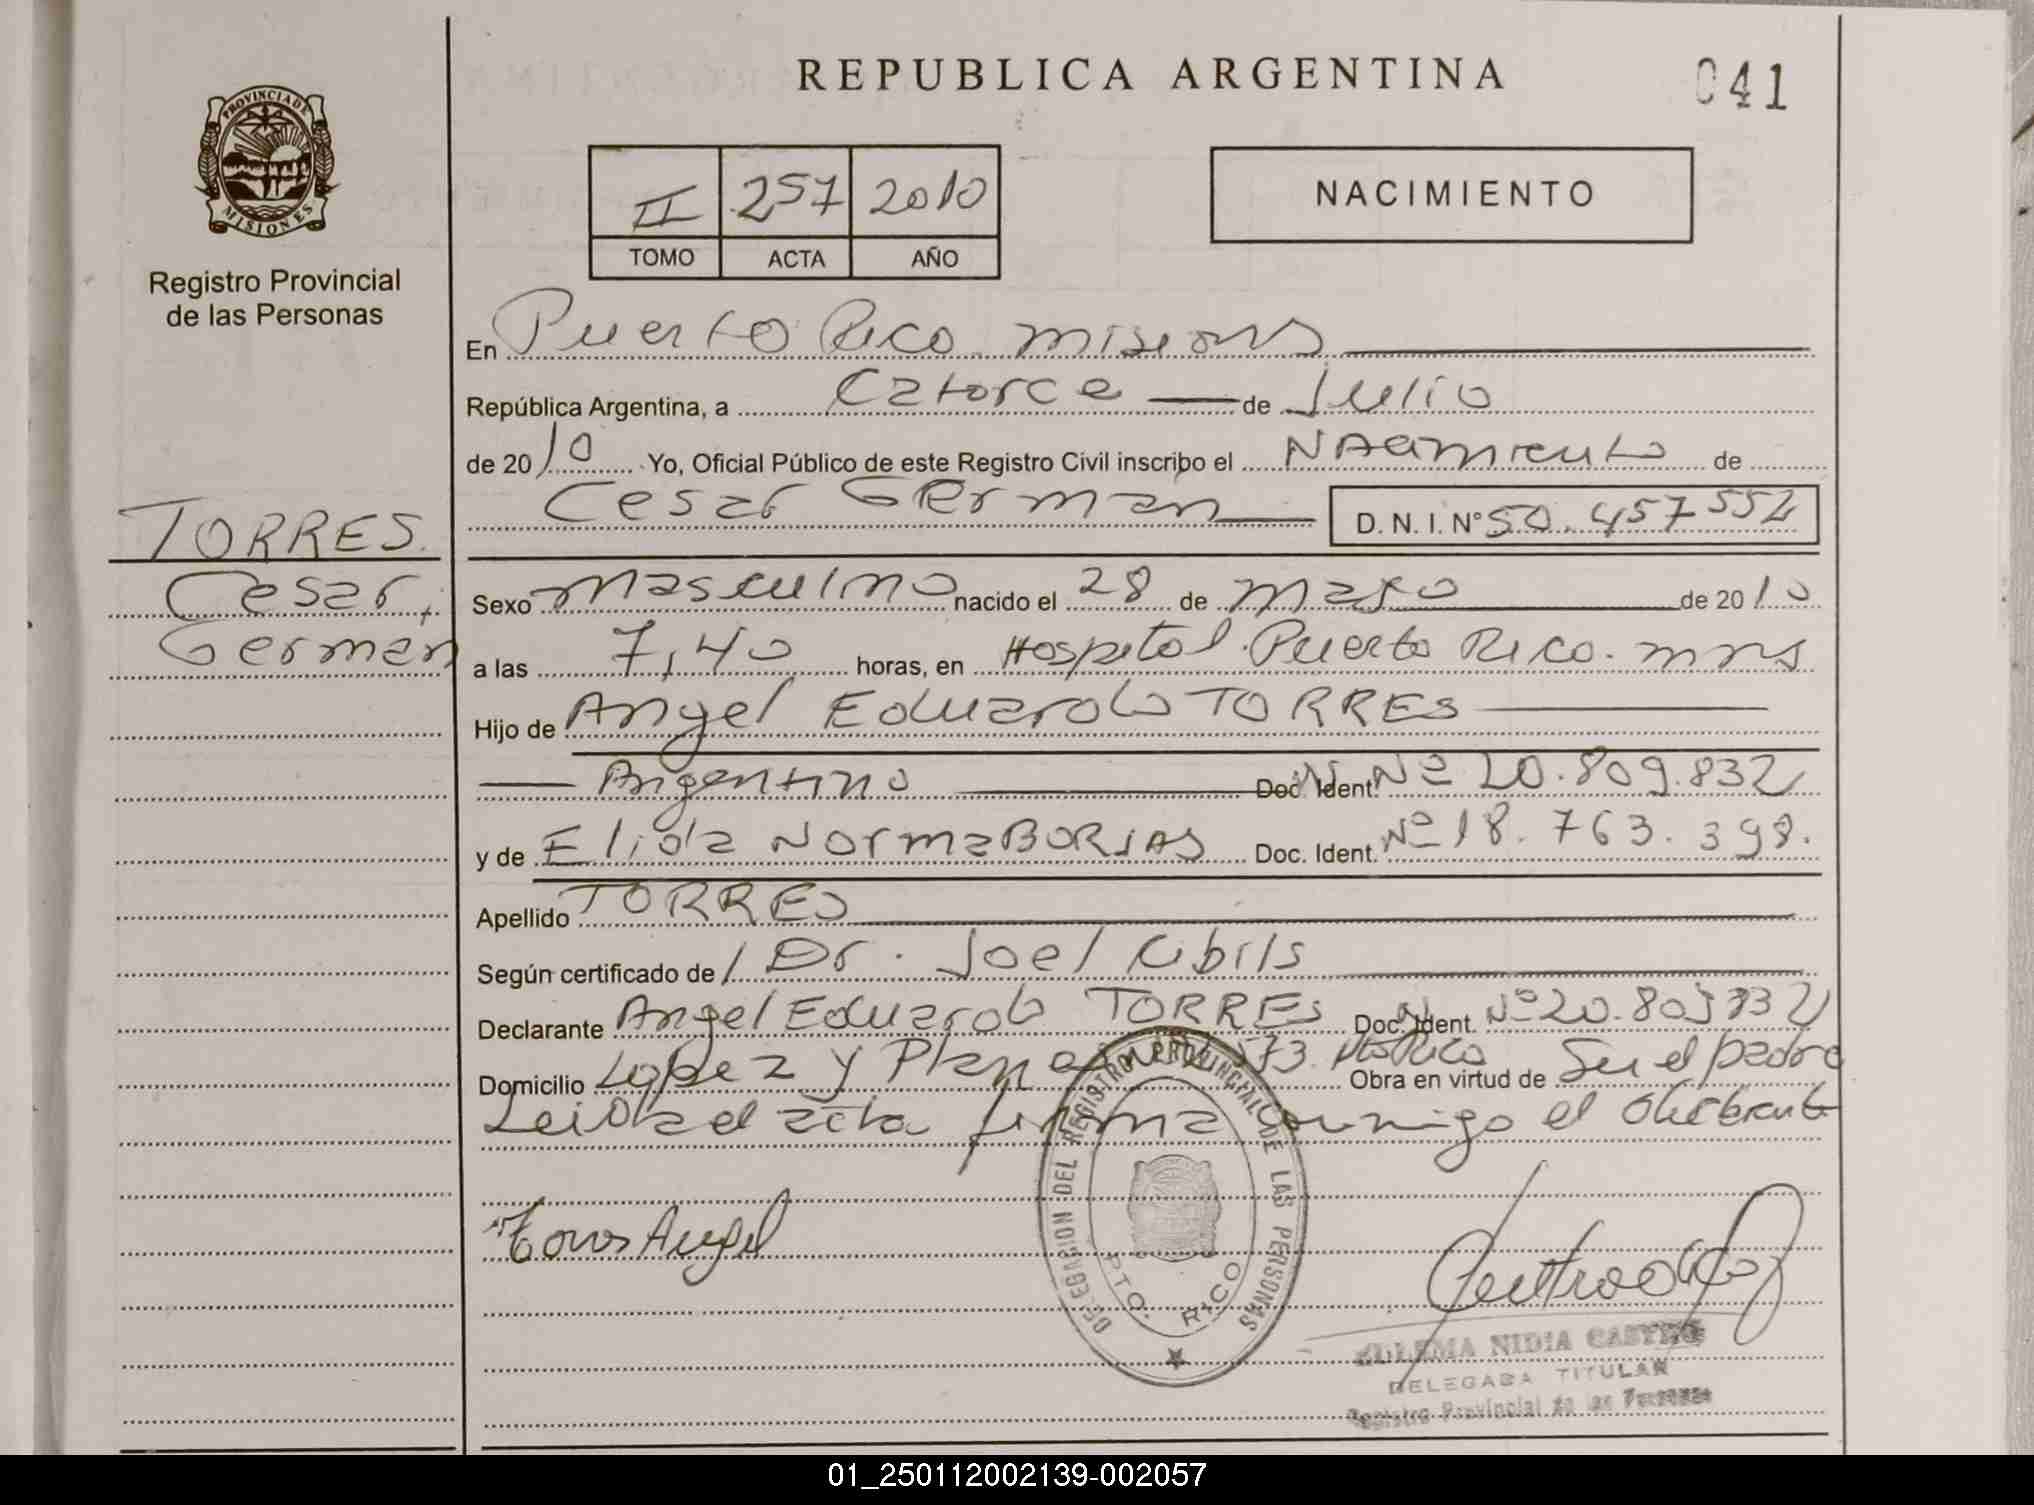 REPUBLICA ARGENTINA
041
PROVINCIA DE
MISIONES
Registro Provincial
de las Personas
II 257 2010
TOMO ACTA AÑO
NACIMIENTO
En Puerto Rico misions
República Argentina, a Catorce de Julio
de 2010 Yo, Oficial Público de este Registro Civil inscribo el Nacimiento de
Cesar German D. N. I. Nº 50.457552
TORRES.
Cesar,
German
Sexo masculino nacido el 28 de mayo de 2010
a las 7,40 horas, en Hospital Puerto Rico. mns
Hijo de Angel Eduardo TORRES
Argentino Doc. Ident. Nº 20.809.832
y de Elida Norma BORJAS Doc. Ident. Nº 18.763.398.
Apellido TORRES
Según certificado de Dr. Joel Cibils
Declarante Angel Eduardo TORRES Doc. Ident. Nº 20.809832
Domicilio Lopez y Planes Pto Rico Obra en virtud de Su el padre
Leida el acta firma conmigo el
Torres Angel
DELEGACION DEL REGISTRO PROVINCIAL DE LAS PERSONAS
PTO. RICO
NIDIA CASTRO
DELEGADA TITULAR
Registro Provincial de las Personas
01_250112002139-002057